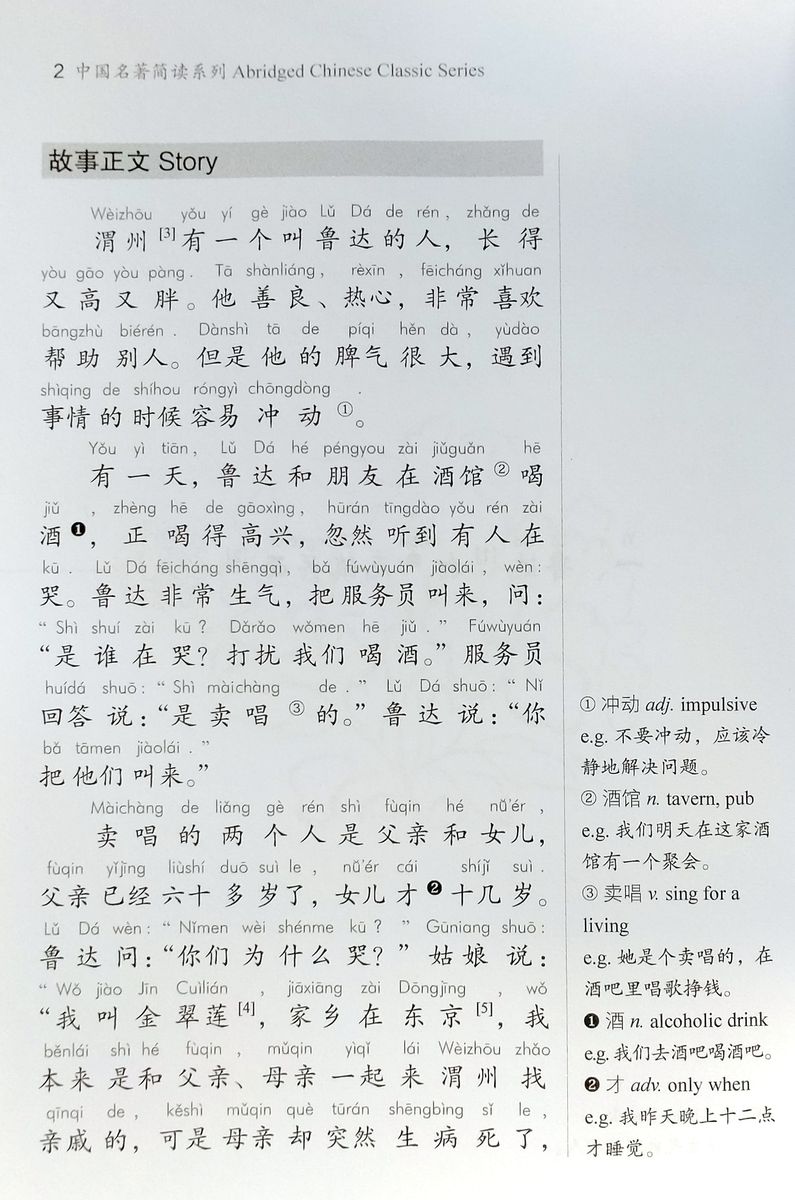 2 中国名著简读系列 Abridged Chinese Classic Series
故事正文 Story
Wèizhōu yǒu yí gè jiào Lǔ Dá de rén, zhǎng de
渭州[3]有一个叫鲁达的人，长得
yòu gāo yòu pàng. Tā shànliáng, rèxīn, fēicháng xǐhuan
又高又胖。他善良、热心，非常喜欢
bāngzhù biérén. Dànshì tā de píqi hěn dà, yùdào
帮助别人。但是他的脾气很大，遇到
shìqing de shíhou róngyì chōngdòng.
事情的时候容易冲动①。
Yǒu yì tiān, Lǔ Dá hé péngyou zài jiǔguǎn hē
有一天，鲁达和朋友在酒馆②喝
jiǔ, zhèng hē de gāoxìng, hūrán tīngdào yǒu rén zài
酒❶，正喝得高兴，忽然听到有人在
kū. Lǔ Dá fēicháng shēngqì, bǎ fúwùyuán jiàolái, wèn:
哭。鲁达非常生气，把服务员叫来，问：
“Shì shuí zài kū? Dǎrǎo wǒmen hē jiǔ.” Fúwùyuán
“是谁在哭？打扰我们喝酒。”服务员
huídá shuō: “Shì màichàng de.” Lǔ Dá shuō: “Nǐ
回答说：“是卖唱③的。”鲁达说：“你
bǎ tāmen jiàolái.”
把他们叫来。”
Màichàng de liǎng gè rén shì fùqin hé nǚ'ér,
卖唱的两个人是父亲和女儿，
fùqin yǐjīng liùshí duō suì le, nǚ'ér cái shíjǐ suì.
父亲已经六十多岁了，女儿才❷十几岁。
Lǔ Dá wèn: “Nǐmen wèi shénme kū?” Gūniang shuō:
鲁达问：“你们为什么哭？”姑娘说：
“Wǒ jiào Jīn Cuìlián, jiāxiāng zài Dōngjīng, wǒ
“我叫金翠莲[4]，家乡在东京[5]，我
běnlái shì hé fùqin, mǔqin yìqǐ lái Wèizhōu zhǎo
本来是和父亲、母亲一起来渭州找
qīnqi de, kěshì mǔqin què tūrán shēngbìng sǐ le,
亲戚的，可是母亲却突然生病死了，
① 冲动 adj. impulsive
e.g. 不要冲动，应该冷
静地解决问题。
② 酒馆 n. tavern, pub
e.g. 我们明天在这家酒
馆有一个聚会。
③ 卖唱 v. sing for a
living
e.g. 她是个卖唱的，在
酒吧里唱歌挣钱。
❶ 酒 n. alcoholic drink
e.g. 我们去酒吧喝酒吧。
❷ 才 adv. only when
e.g. 我昨天晚上十二点
才睡觉。